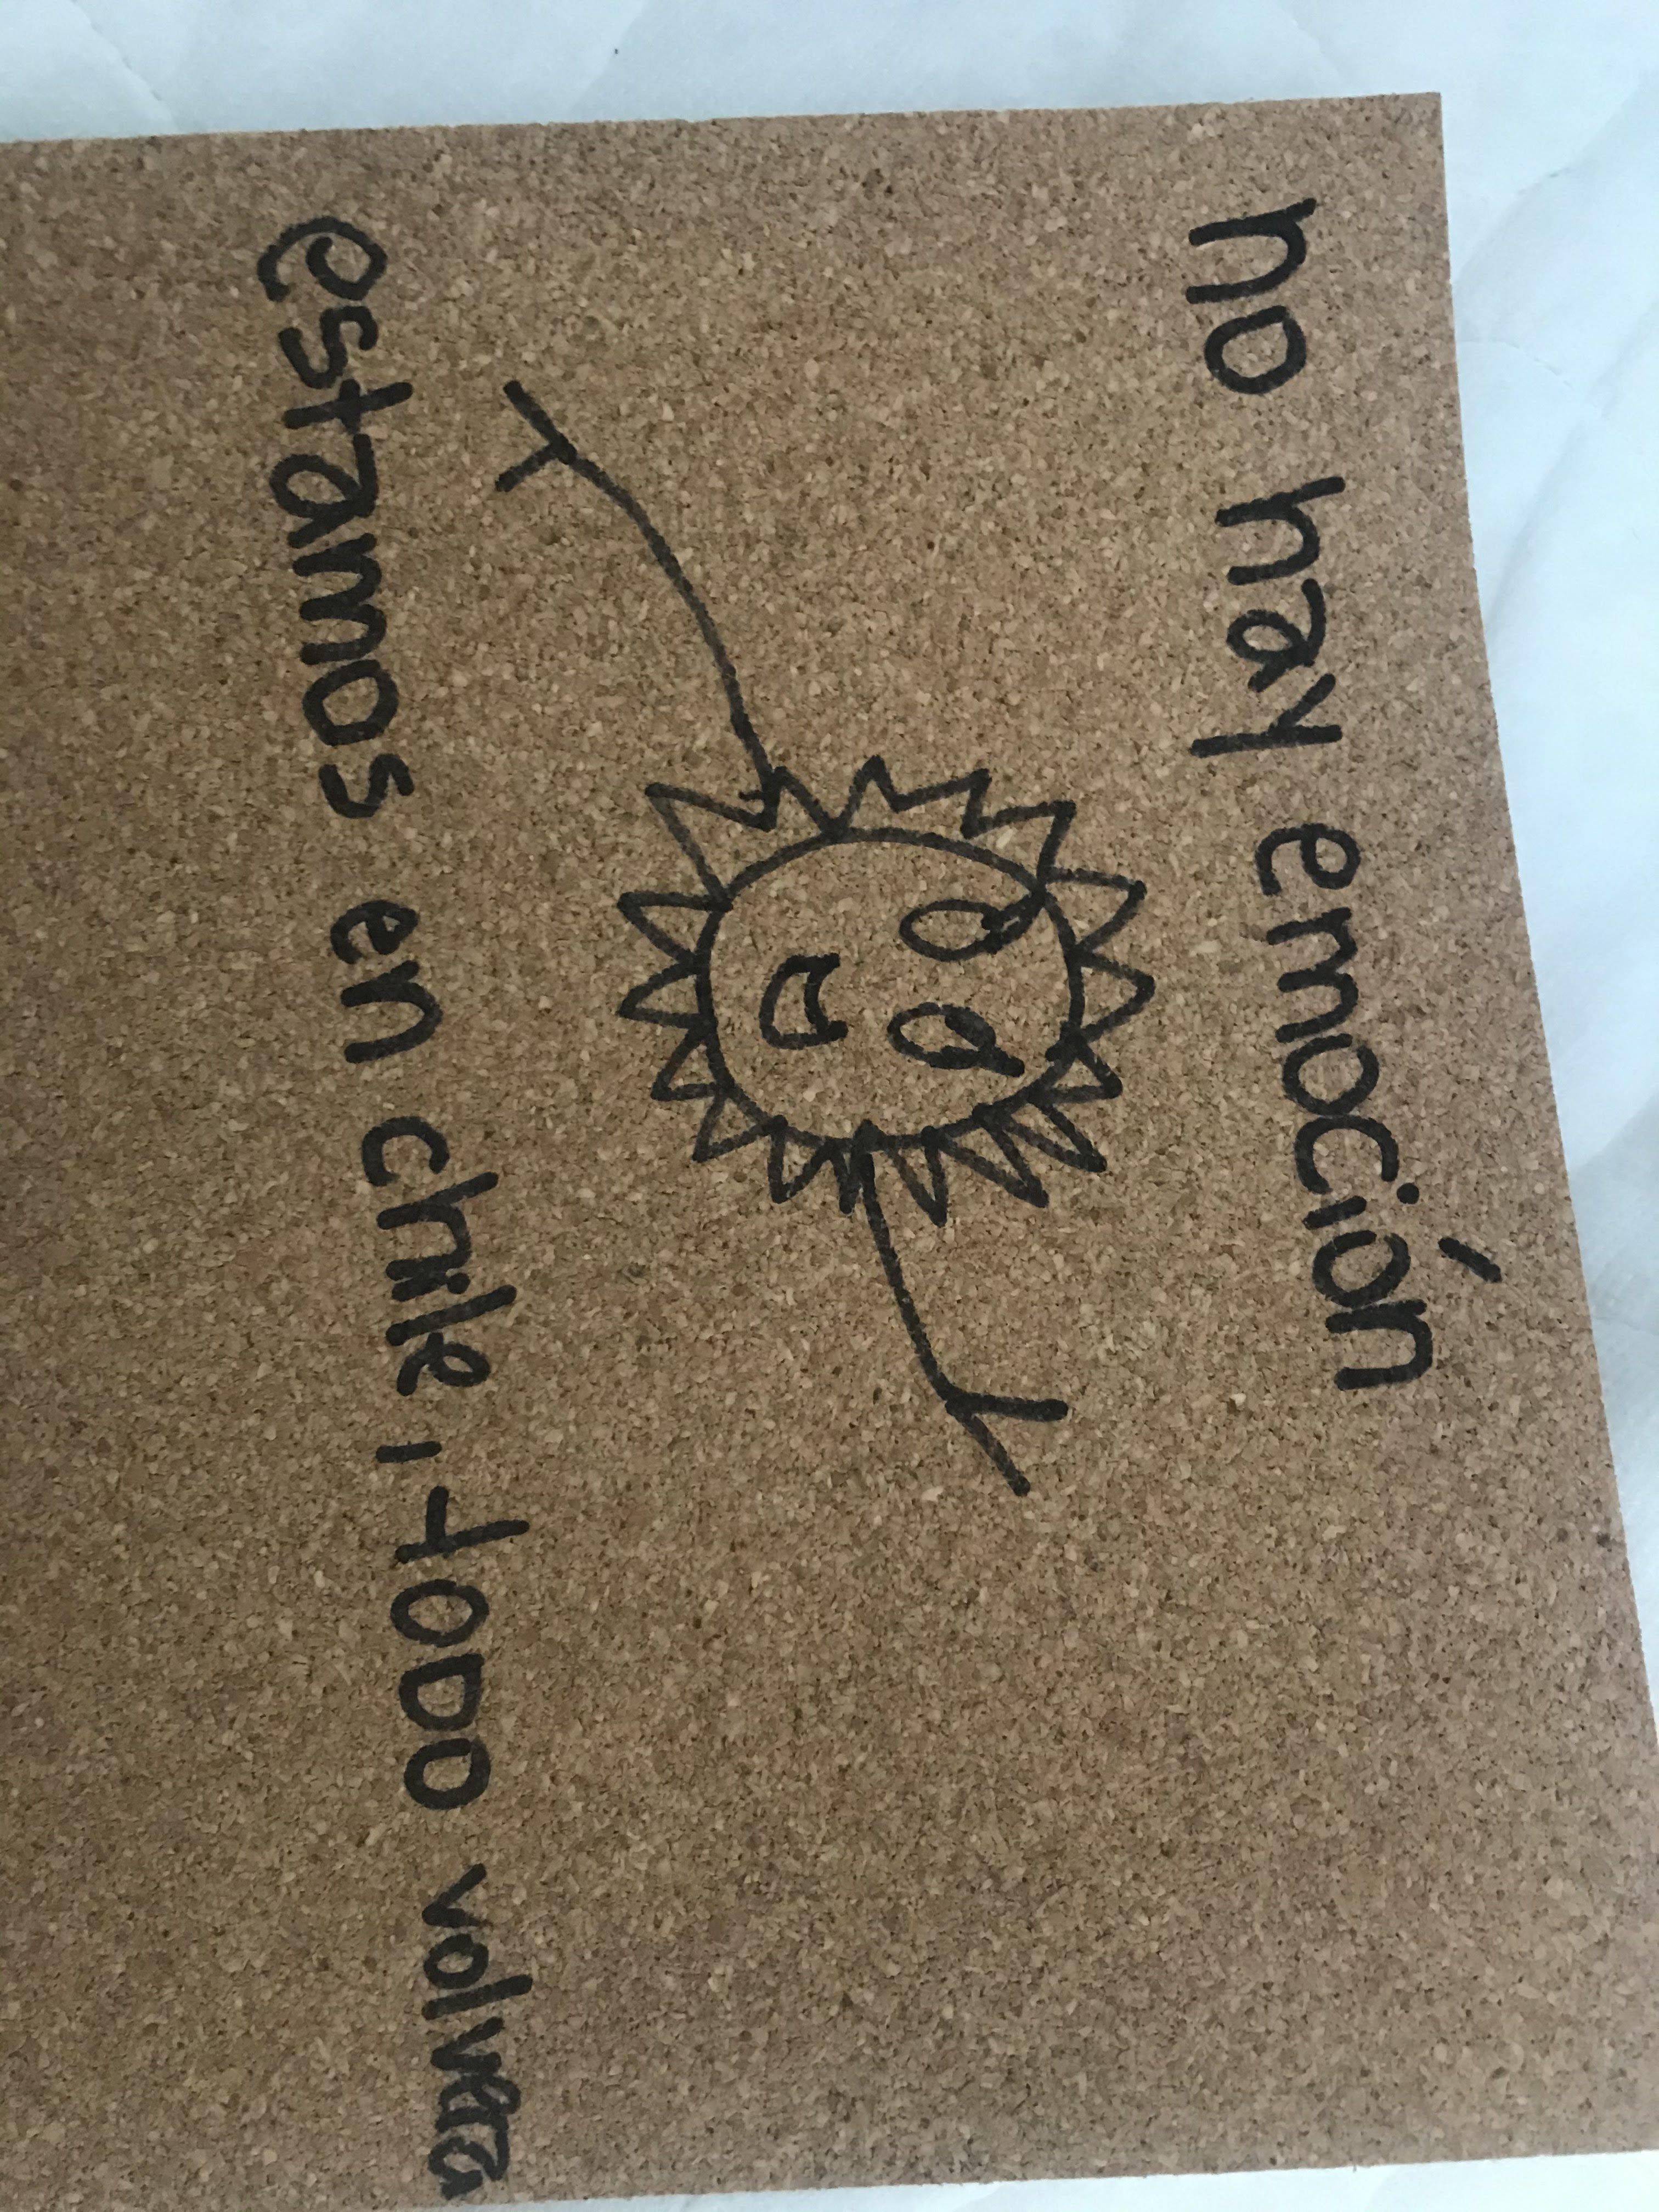 no hay emoción
estamos en chile, todo volverá